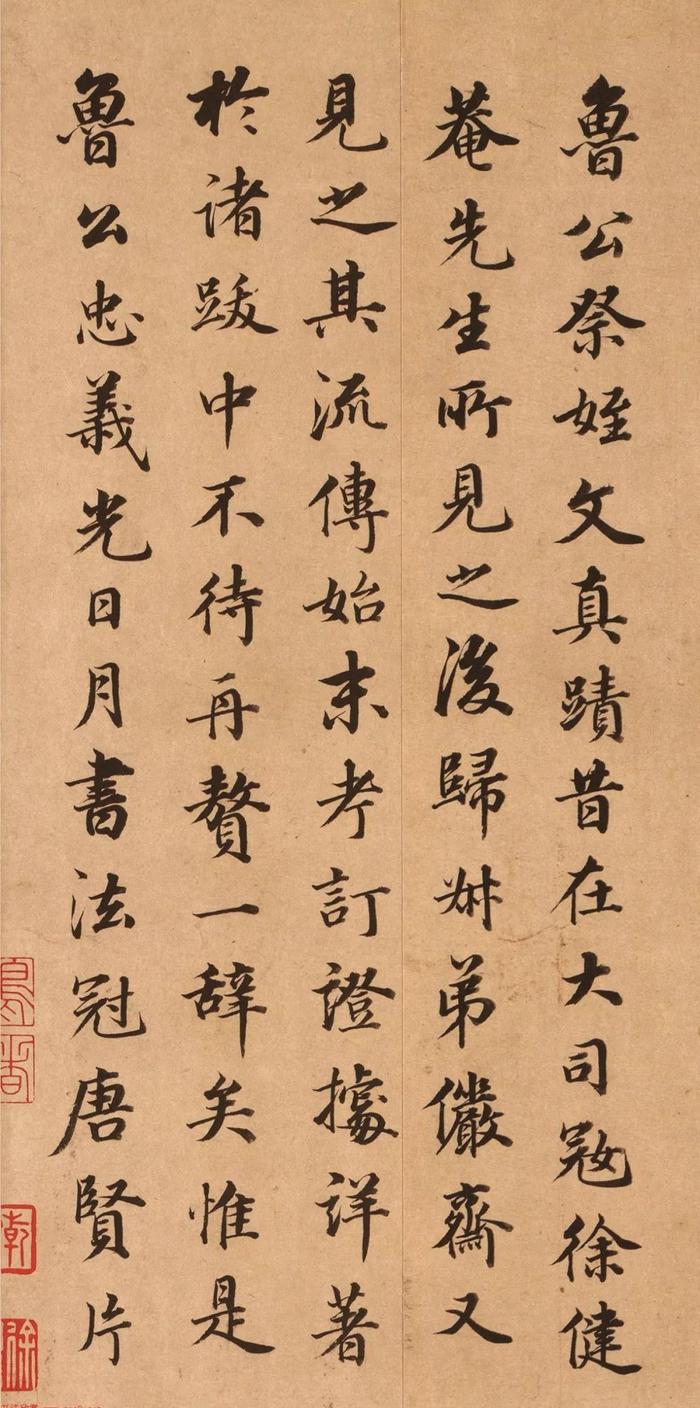 魯公祭姪文真蹟昔在大司寇徐健
菴先生所見之後歸叔弟儼齋又
見之其流傳始末考訂證據詳著
於諸跋中不待再贅一辭矣惟是
魯公忠義光日月書法冠唐賢片